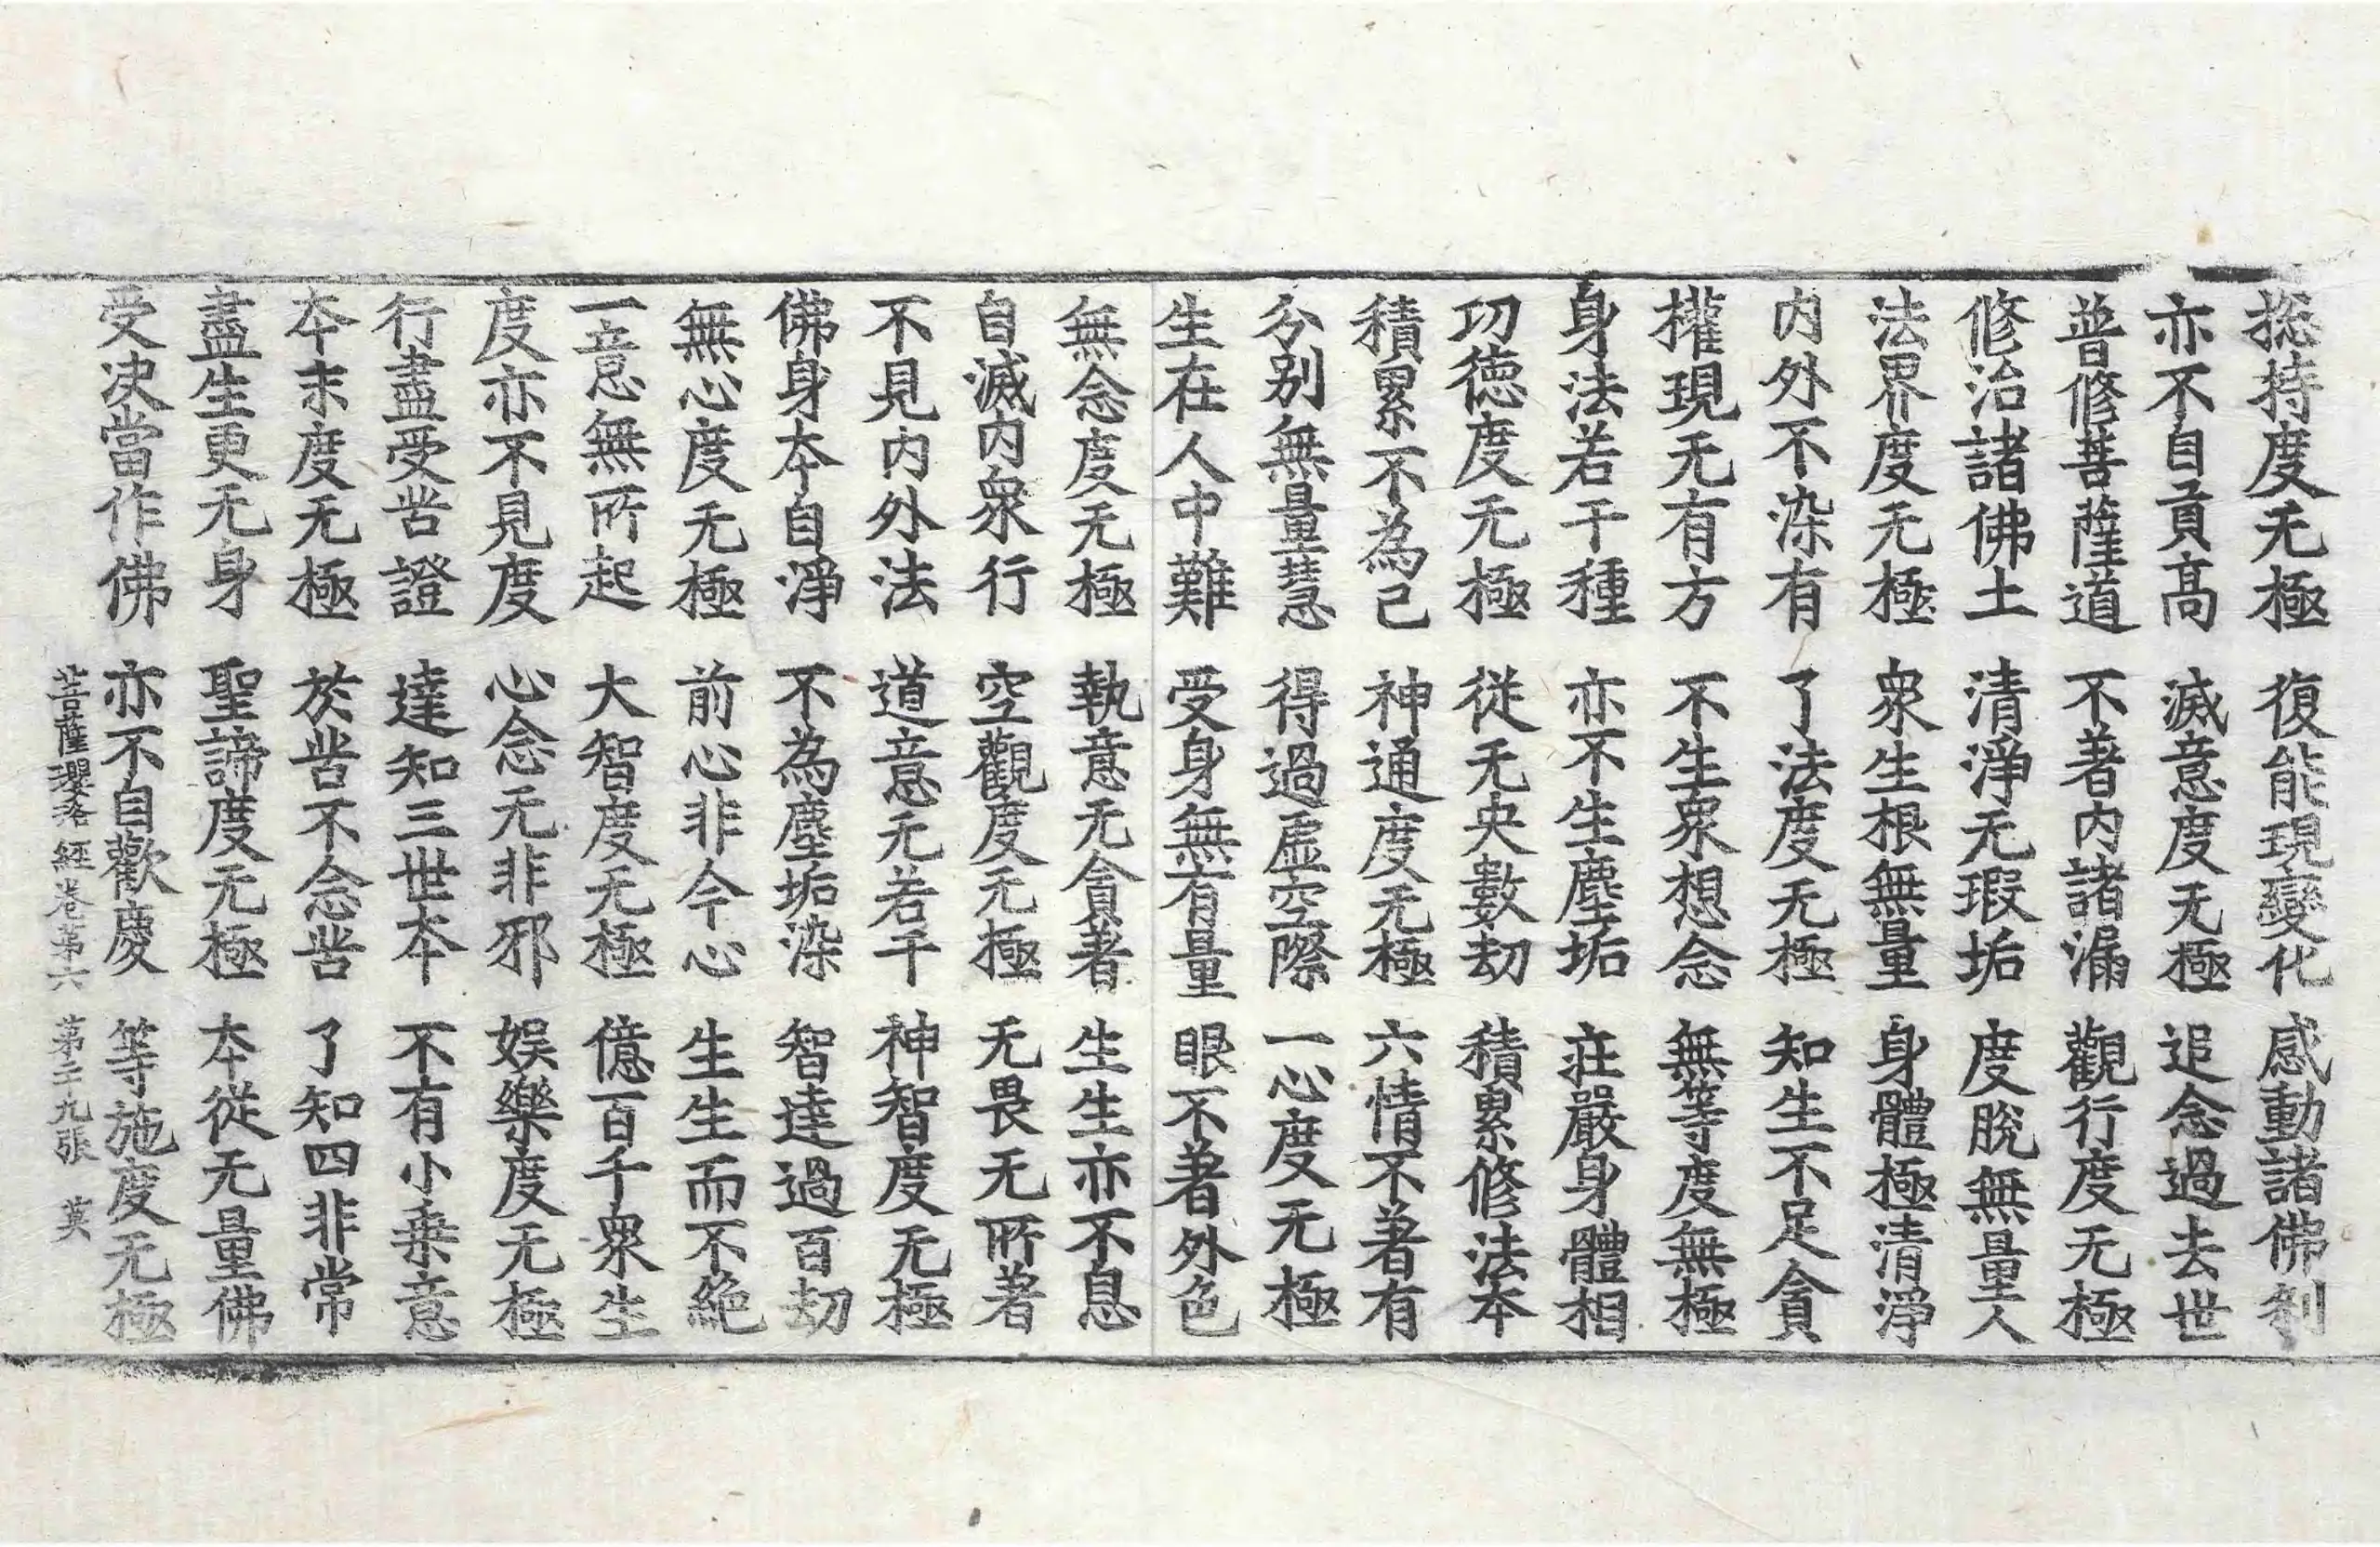 揔持度无極 復能現變化 感動諸佛刹
亦不自貢高 滅意度无極 追念過去世
普修菩薩道 不著內諸漏 觀行度无極
修治諸佛土 清淨无瑕垢 度脫無量人
法界度无極 衆生根無量 身體極清淨
內外不染有 了法度无極 知生不足貪
權現无有方 不生衆想念 無等度無極
身法若干種 亦不生塵垢 莊嚴身體相
功德度无極 從无央數劫 積累修法本
積累不為己 神通度无極 六情不著有
分別無量慧 得過虛空際 一心度无極
生在人中難 受身無有量 眼不著外色
無念度无極 執意无貪著 生生亦不息
自滅內衆行 空觀度无極 无畏无所著
不見內外法 道意无若干 神智度无極
佛身本自淨 不為塵垢染 智達過百劫
無心度无極 前心非今心 生生而不絕
一意無所起 大智度无極 億百千衆生
度亦不見度 心念无非邪 娛樂度无極
行盡受苦證 達知三世本 不有小乗意
本末度无極 於苦不念苦 了知四非常
盡生更无身 聖諦度无極 本從无量佛
受決當作佛 亦不自歡慶 等施度无極
菩薩瓔珞經卷第六 第二九張 英